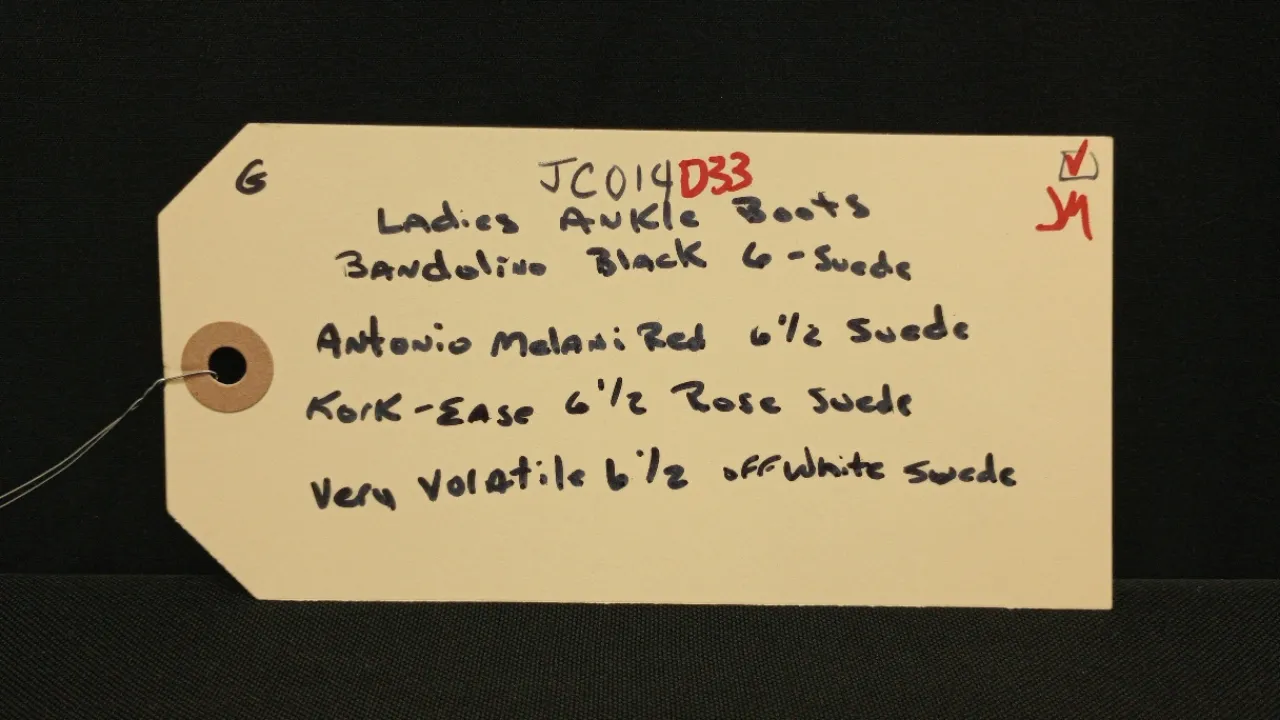 G
JC014D33
Ladies Ankle Boots
Bandolino Black 6 - Suede
Antonio Melani Red 6 1/2 Suede
Kork-Ease 6 1/2 Rose Suede
Very Volatile 6 1/2 off White Suede